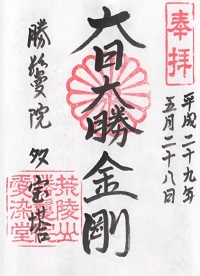 奉拝
平成二十九年
五月二十八日
大日大勝金剛
勝鬘院 多宝塔
荒陵山
愛染堂